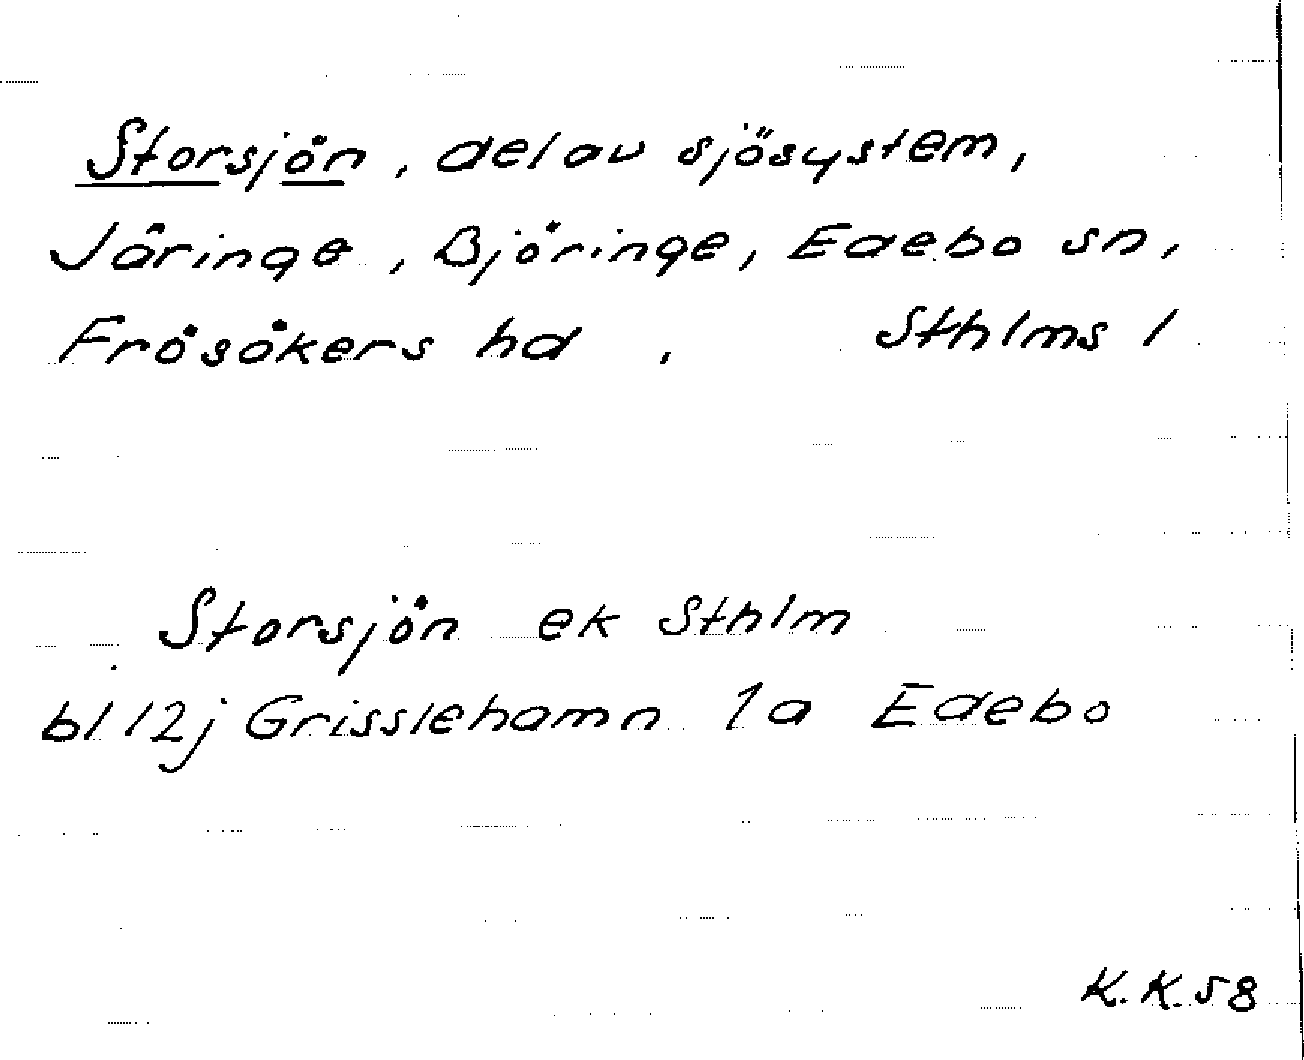 Storsjön, del av sjösystem,
Järinge, Björinge, Edebo sn,
Frösökers hd, Sthlms l
Storsjön ek Sthlm
bl 12j Grisslehamn 1a Edebo
K.K.58